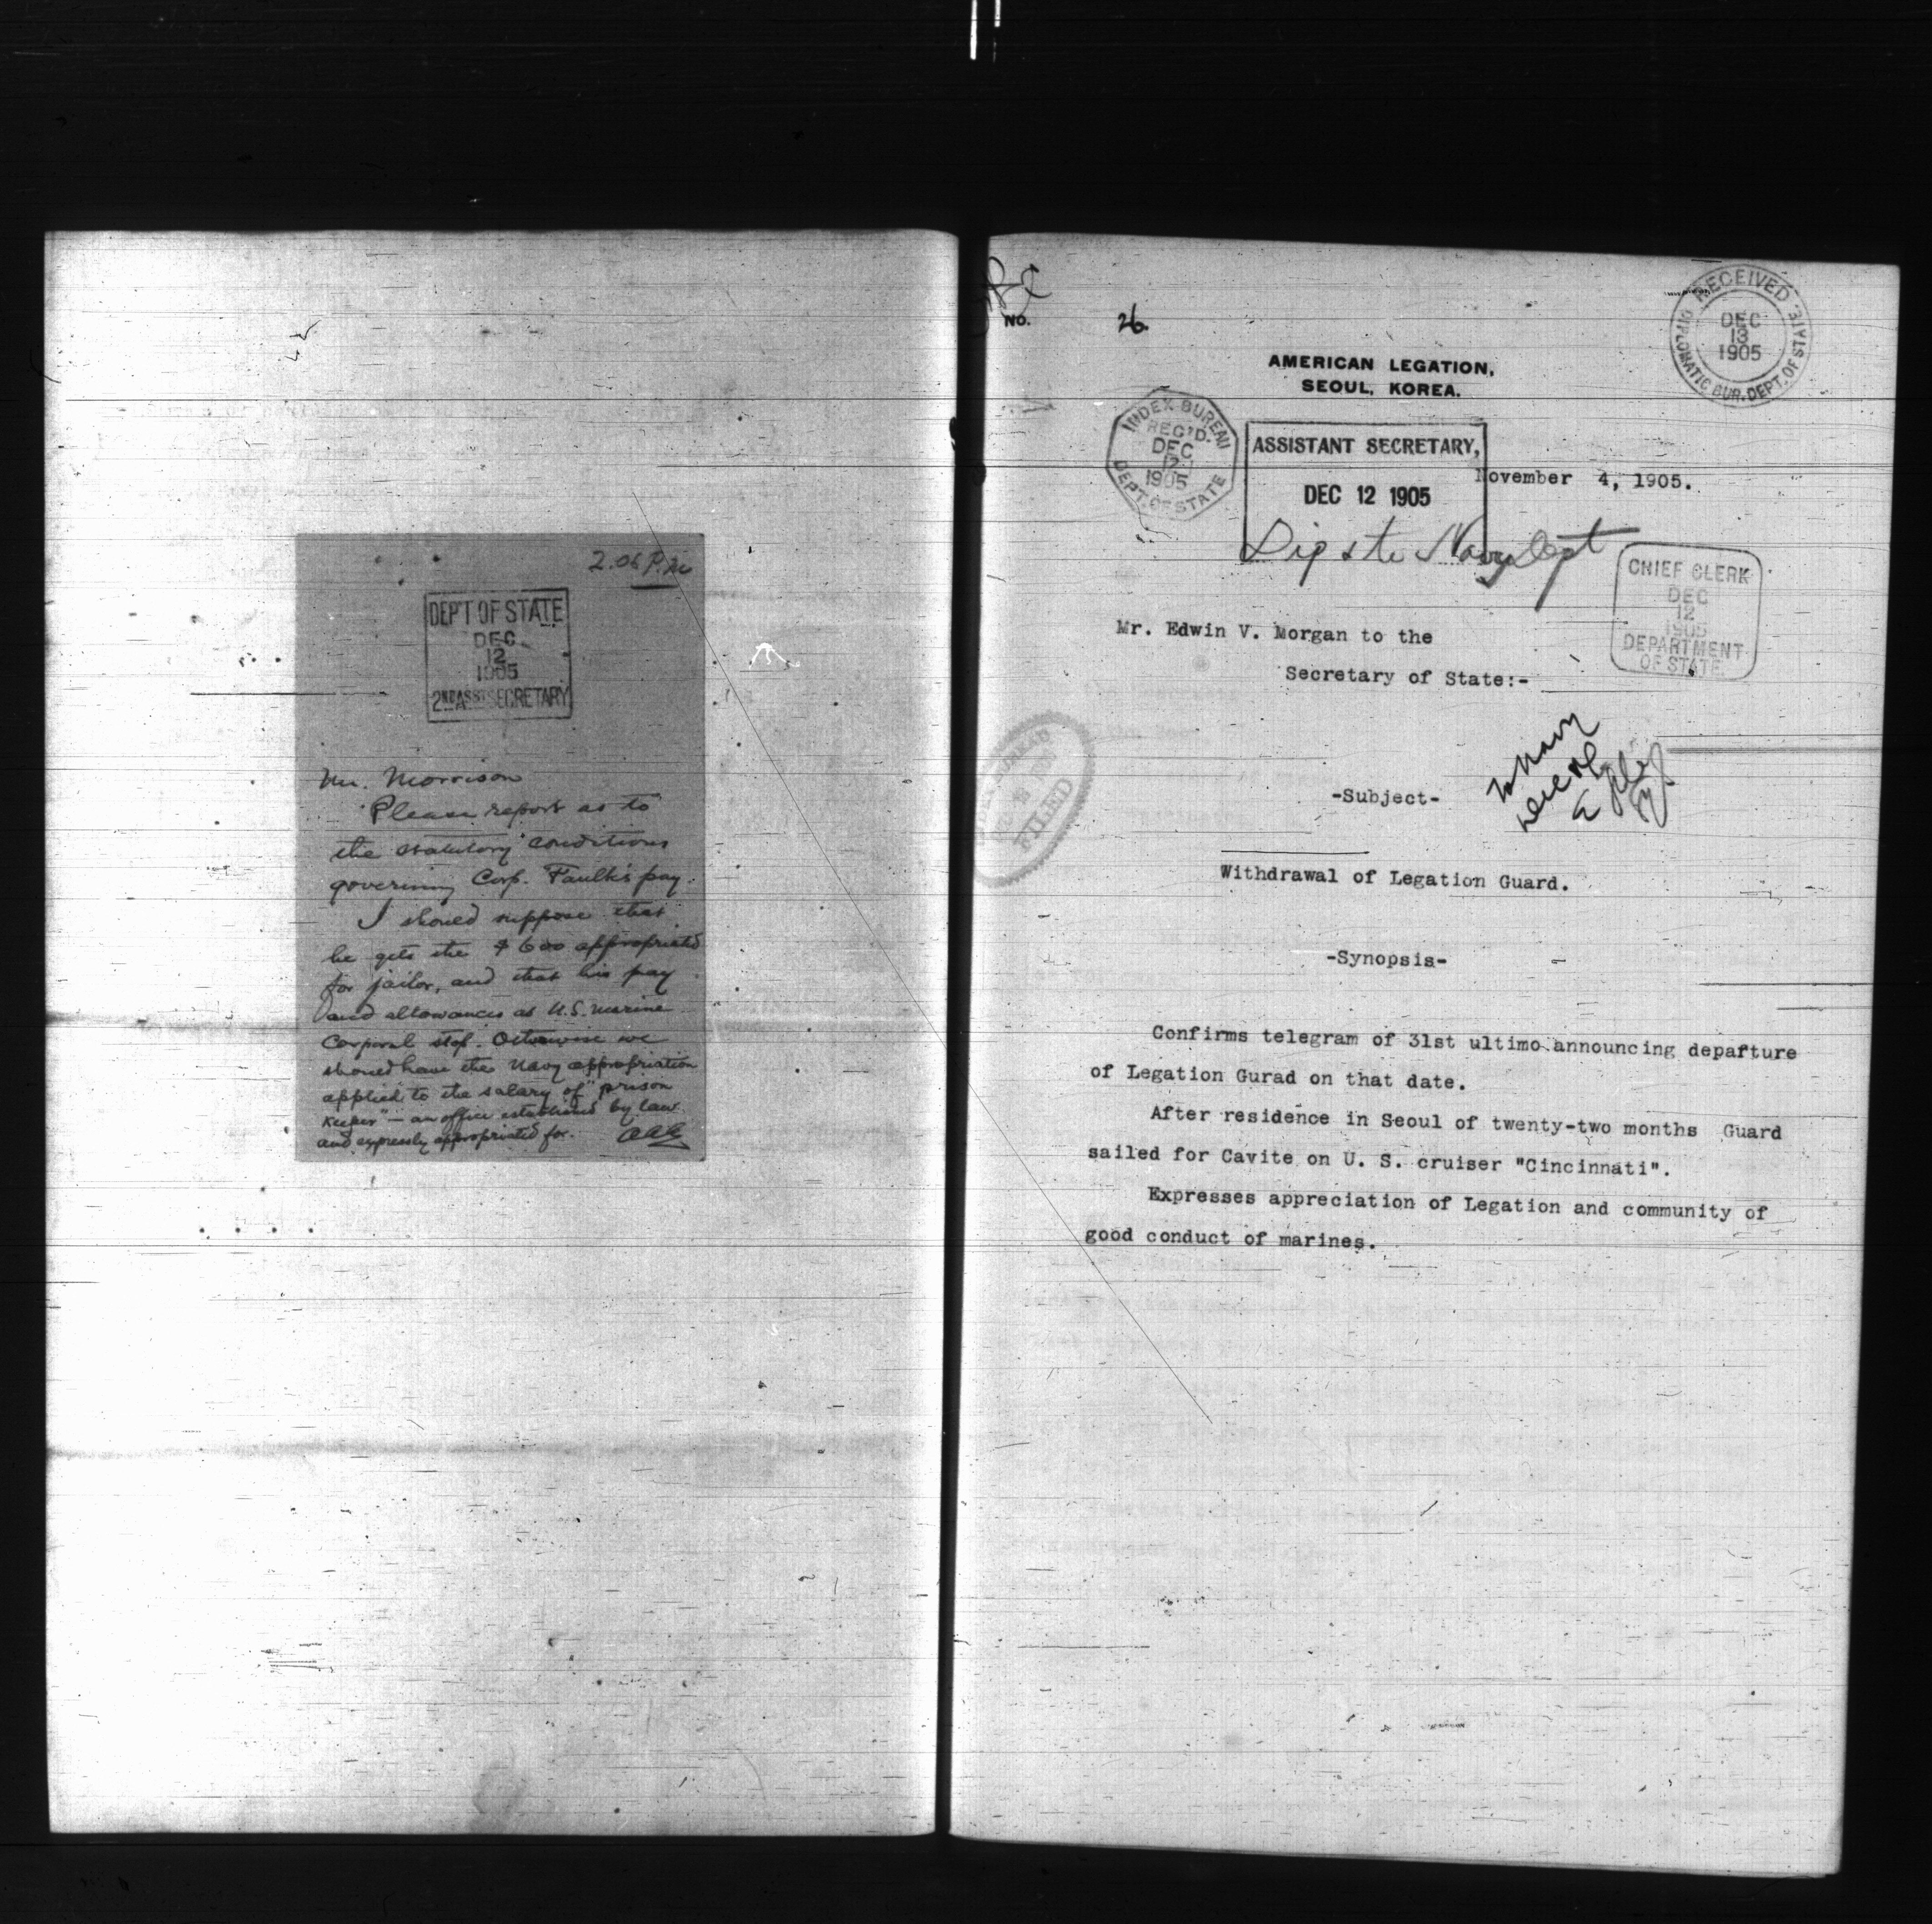 2.06 P.M
DEPT OF STATE
DEC
12
1905
2ND ASST SECRETARY
Mr. Morrison
Please report as to
the statutory conditions
governing Corp. Faulk's pay.
I should suppose that
he gets the $600 appropriated
for jailor, and that his pay
and allowances as U.S. marine
Corporal stop. Otherwise we
should have the Navy appropriation
applied to the salary of "prison
keeper" — an office established by law
and expressly appropriated for.
AAA
No. 26.
RECEIVED
DEC
13
1905
DIPLOMATIC BUR. DEPT. OF STATE
AMERICAN LEGATION,
SEOUL, KOREA.
INDEX BUREAU
REC'D.
DEC
12
1905
DEPT. OF STATE
ASSISTANT SECRETARY,
DEC 12 1905
November 4, 1905.
Navy Dept
CHIEF CLERK
DEC
12
1905
DEPARTMENT
OF STATE.
Mr. Edwin V. Morgan to the
Secretary of State:-
FILED
to Navy
-Subject-
Withdrawal of Legation Guard.
-Synopsis-
Confirms telegram of 31st ultimo announcing departure
of Legation Gurad on that date.
After residence in Seoul of twenty-two months Guard
sailed for Cavite on U. S. cruiser "Cincinnati".
Expresses appreciation of Legation and community of
good conduct of marines.